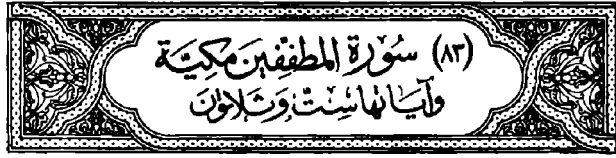 (٨٣) سُورَة المطفِّفين مَكيّة
وَآيَاتهَا سِتٌّ وَثَلاثونَ